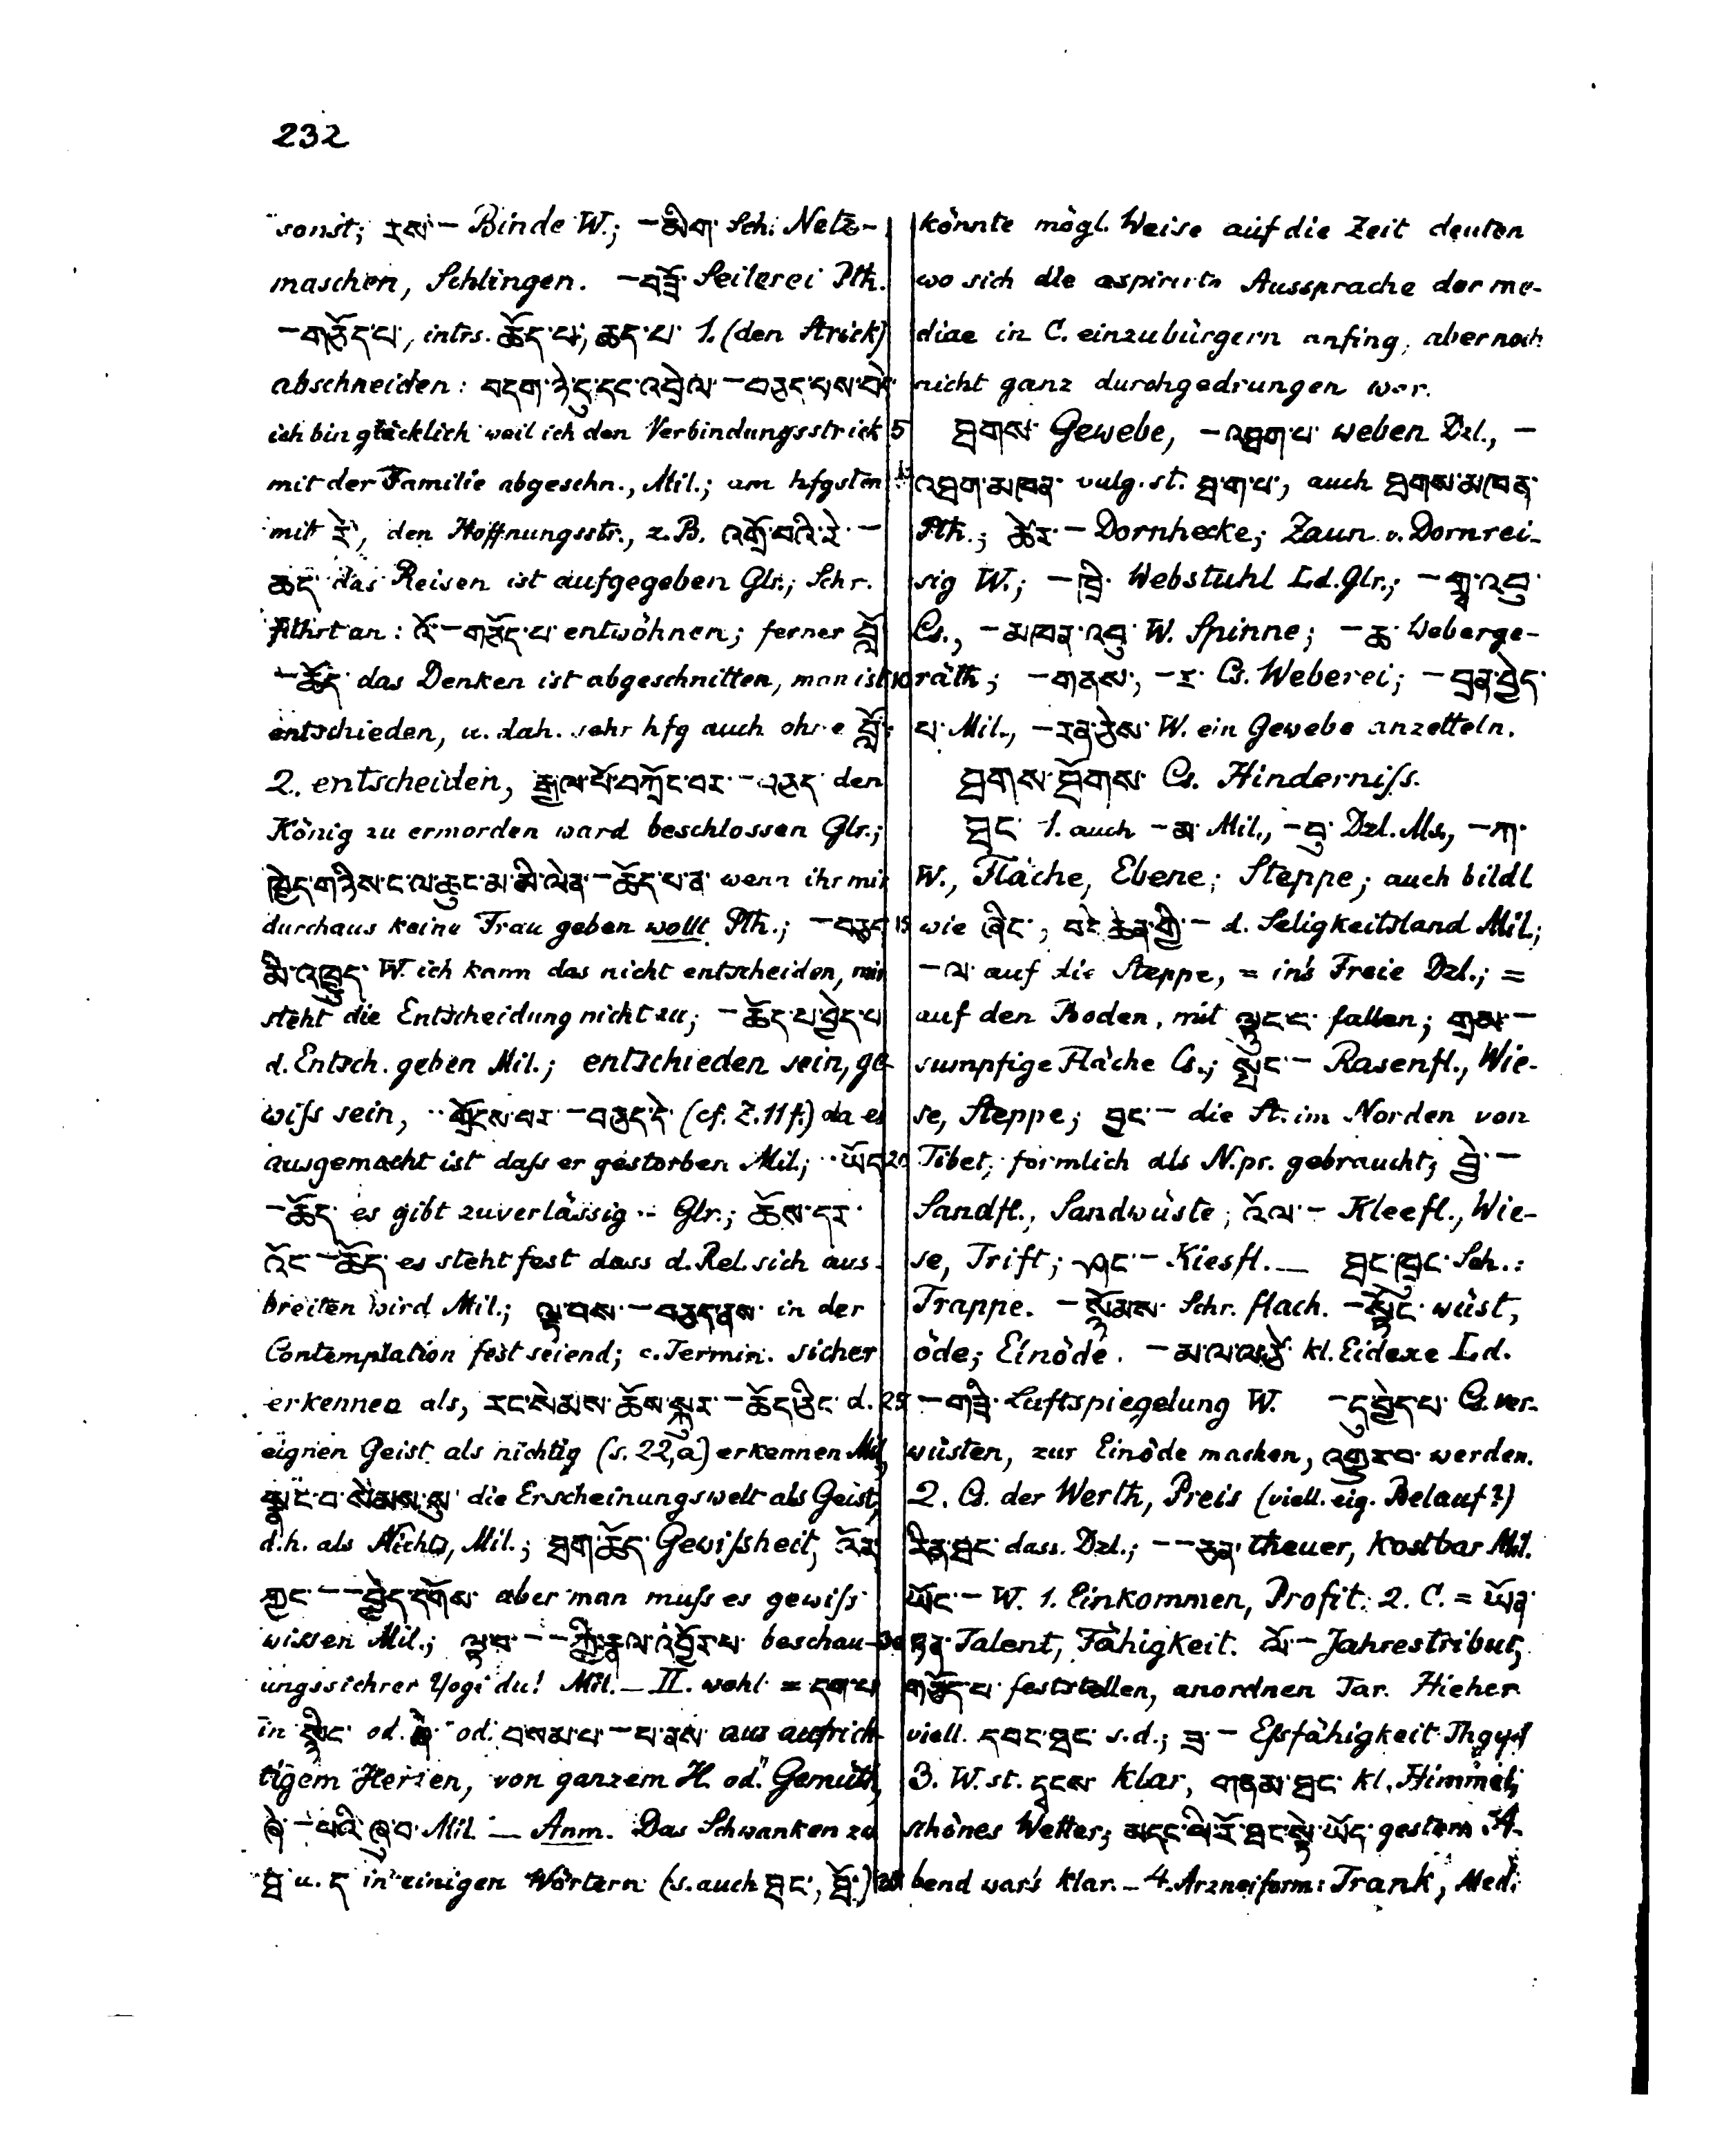 232
sonst; རས་ – Binde W.; – མིག་ Sch. Netz-
maschen, Schlingen. – བཟོ་ Seilerei Pth.
– གཅོད་པ་, intrs. ཆོད་པ་, ཆད་པ་ 1. (den Strick)
abschneiden: བདག་ཉེ་དུ་དང་འབྲེལ་ – བཅད་པས་བདེ་
ich bin glücklich weil ich den Verbindungsstrick
mit der Familie abgeschn., Mil.; am hfgsten
mit རེ་, den Hoffnungsstr., z. B. འགྲོ་བའི་རེ་ –
ཆད་ das Reisen ist aufgegeben Glr.; Schr.
führt an: འོ་ – གཅོད་པ་ entwöhnen; ferner བློ་
– ཆོད་ das Denken ist abgeschnitten, man ist
entschieden, u. dah. sehr hfg auch ohne བློ་:
2. entscheiden, རྒྱལ་པོ་བཀྲོང་བར་ – བཅད་ den
König zu ermorden ward beschlossen Glr.;
ཁྱེད་གཉིས་ང་ལ་ཆུང་མ་མི་ལེན་ – ཆོད་པ་ན་ wenn ihr mir
durchaus keine Frau geben wollt Pth.; – བཅད་
མི་འཁྱུད་ W. ich kann das nicht entscheiden, mir
steht die Entscheidung nicht zu; – ཆོད་པ་བྱེད་པ་
d. Entsch. geben Mil.; entschieden sein, ge-
wiſs sein, ·· གྲོངས་བར་ – བཅད་དེ་ (cf. Z. 11 f.) da es
ausgemacht ist daſs er gestorben Mil.; ·· ཡོད་
– ཆོད་ es gibt zuverlässig ·· Glr.; ཆོས་དར་
འོང་ – ཆོད་ es steht fest dass d. Rel. sich aus-
breiten wird Mil.; ལྟ་བས་ – བཅད་ནས་ in der
Contemplation fest seiend; c. Termin. sicher
erkennen als, རང་སེམས་ཆོས་སྐུར་ – ཆོད་ཅིང་ d.
eignen Geist als nichtig (s. 22, a) erkennen Mil.,
སྣང་བ་སེམས་སུ་ die Erscheinungswelt als Geist,
d. h. als Nichts, Mil.; ཐག་ཆོད་ Gewiſsheit,
ཀྱང་ – – བྱེད་དགོས་ aber man muſs es gewiſs
wissen Mil.; ལྟ་བ་ – – ཀྱི་རྣལ་འབྱོར་པ་ beschau-
ungssichrer Yogi du! Mil. – II. wohl = དག་པ་
in སྙིང་ od. od. བསམ་པ་ – པ་ནས་ aus aufrich-
tigem Herzen, von ganzem H. od. Gemüth,
– པའི་ཞུ་བ་ Mil. – Anm. Das Schwanken zw.
ཐ u. ད in einigen Wörtern (s. auch ཐང་, ཐོ་)
könnte mögl. Weise auf die Zeit deuten
wo sich die aspirirte Aussprache der me-
diae in C. einzubürgern anfing, aber noch
nicht ganz durchgedrungen war.
5 ཐགས་ Gewebe, – འཐག་པ་ weben Dzl., –
འཐག་མཁན་ vulg. st. ཐ་ག་པ་, auch ཐགས་མཁན་
Pth.; ཚེར་ – Dornhecke; Zaun v. Dornrei-
sig W.; – ཁྲི་ Webstuhl Ld. Glr.; – གྲྭ་འབུ་
Cs., – མཁན་འབུ་ W. Spinne; – ཆ་ Weberge-
10 räth; – གནས་, – ར་ Cs. Weberei; – བྲན་བྱེད་
པ་ Mil., – རན་ཅེས་ W. ein Gewebe anzetteln.
ཐགས་ཐོགས་ Cs. Hinderniſs.
ཐང་ 1. auch – མ་ Mil., – བུ་ Dzl. Ms, – ཀ་
W., Fläche, Ebene; Steppe; auch bildl
15 wie ཞིང་, བདེ་ཆེན་གྱི་ – d. Seligkeitsland Mil.;
– ལ་ auf die Steppe, = ins Freie Dzl.; =
auf den Boden, mit ལྷུང་བ་ fallen; གྲམ་ –
sumpfige Fläche Cs.; སྤང་ – Rasenfl., Wie-
se, Steppe; བྱང་ – die St. im Norden von
20 Tibet, förmlich als N. pr. gebraucht; བྱེ་ –
Sandfl., Sandwüste; འོལ་ – Kleefl., Wie-
se, Trift; ཤང་ – Kiesfl. – ཐང་ཁྲང་ Sch.:
Trappe. – སྙོམས་ Schr. flach. – སྟོང་ wüst,
öde; Einöde. – kl. Eidexe Ld.
25 – གཟི་ Luftspiegelung W. – དུ་བྱེད་པ་ Cs. ver-
wüsten, zur Einöde machen, འགྱུར་བ་ werden.
2. Cs. der Werth, Preis (viell. eig. Belauf?)
རིན་ཐང་ dass. Dzl.; – – ཅན་ theuer, kostbar Mil.
ཡོང་ – W. 1. Einkommen, Profit. 2. C. = ཡོན་
30 ཏན་ Talent, Fähigkeit. ལོ་ – Jahrestribut,
གཅོད་པ་ feststellen, anordnen Tar. Hieher
viell. དབང་ཐང་ s. d.; ཟ་ – Eſsfähigkeit Thgy.
3. W. st. དྭངས་ klar, གནམ་ཐང་ kl. Himmel,
schönes Wetter; མདང་ཕི་རོ་ཐང་སྟེ་ཡོད་ gestern A-
bend war's klar. – 4. Arzneiform: Trank, Medi-